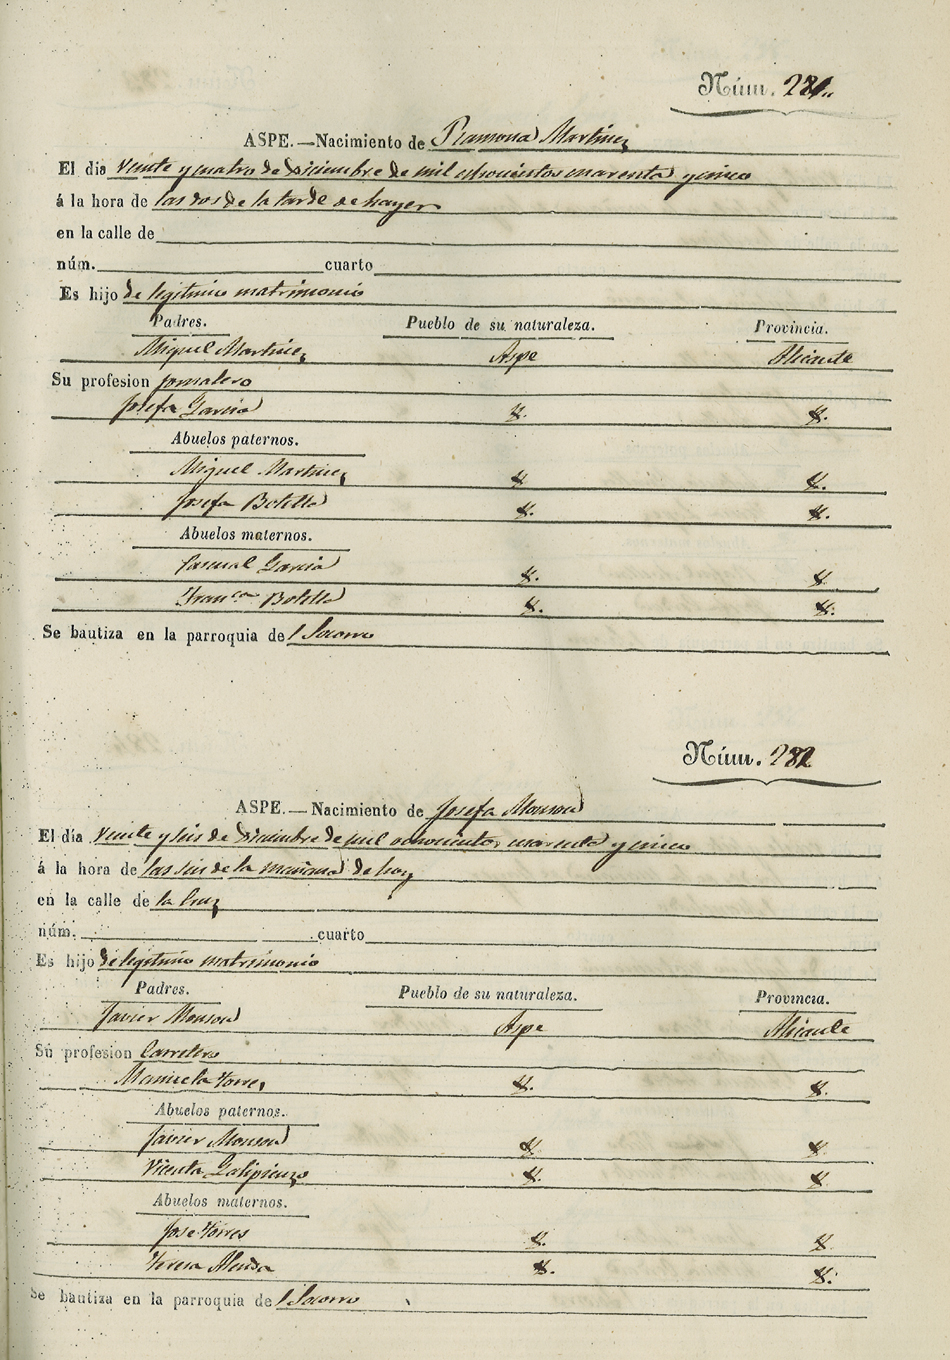 Núm. 281
ASPE.—Nacimiento de Ramona Martinez
El dia veinte y cuatro de Diciembre de mil ochocientos cuarenta y cinco
á la hora de las dos de la tarde de hayer
en la calle de
núm. cuarto
Es hijo de legitimo matrimonio
Padres. Pueblo de su naturaleza. Provincia.
Miguel Martinez Aspe Alicante
Su profesion jornalero
Josefa Garcia
Abuelos paternos.
Miguel Martinez
Josefa Botella
Abuelos maternos.
Pascual Garcia
Franca Botella
Se bautiza en la parroquia del Socorro
Núm. 282
ASPE.—Nacimiento de Josefa Monzou
El día veinte y seis de Diciembre de mil ochocientos cuarenta y cinco
á la hora de las seis de la mañana de hoy
en la calle de la Cruz
núm. cuarto
Es hijo de legitimo matrimonio
Padres. Pueblo de su naturaleza. Provincia.
Javier Aspe Alicante
Su profesion Carretero
Manuela Torres
Abuelos paternos.
Javier
Vicenta Galipienzo
Abuelos maternos.
Jose Torres
Teresa
Se bautiza en la parroquia del Socorro